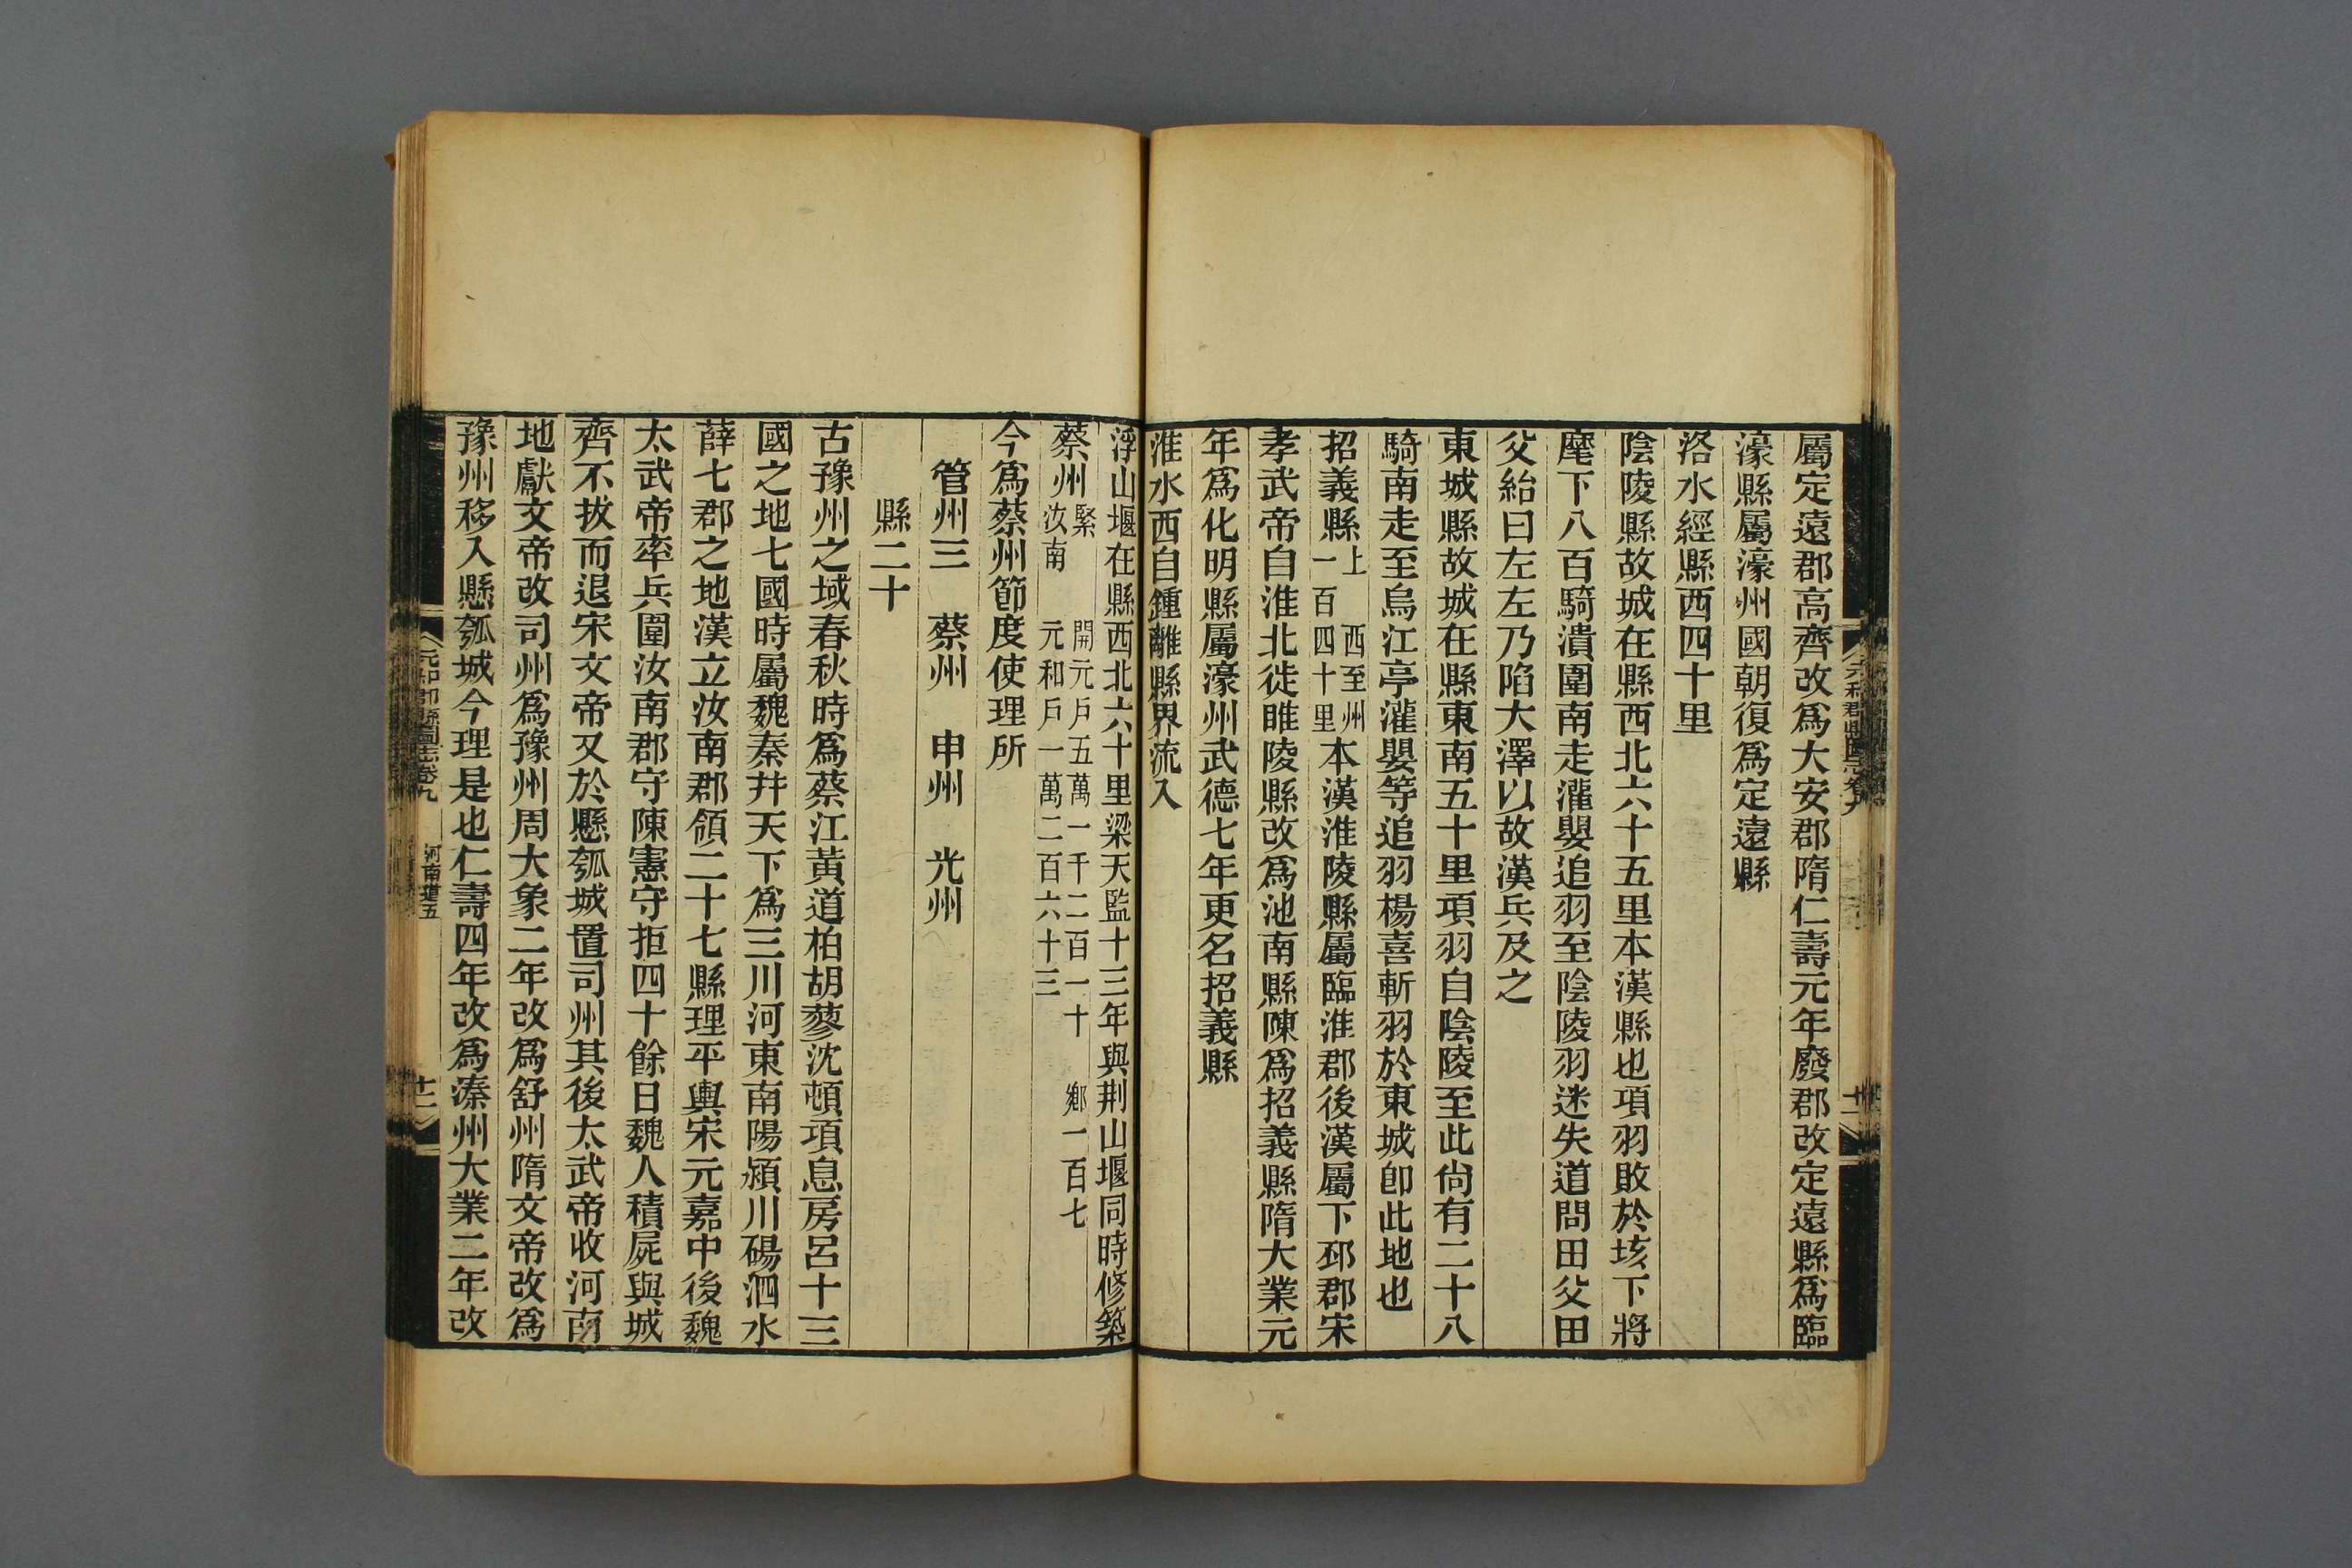 屬定遠郡高齊改爲大安郡隋仁壽元年廢郡改定遠縣爲臨
濠縣屬濠州國朝復爲定遠縣
洛水經縣西四十里
陰陵縣故城在縣西北六十五里本漢縣也項羽敗於垓下將
麾下八百騎潰圍南走灌嬰追羽至陰陵羽迷失道問田父田
父紿曰左左乃陷大澤以故漢兵及之
東城縣故城在縣東南五十里項羽自陰陵至此尙有二十八
騎南走至烏江亭灌嬰等追羽楊喜斬羽於東城卽此地也
招義縣上 西至州一百四十里本漢淮陵縣屬臨淮郡後漢屬下邳郡宋
孝武帝自淮北徙睢陵縣改爲池南縣陳爲招義縣隋大業元
年爲化明縣屬濠州武德七年更名招義縣
淮水西自鍾離縣界流入
浮山堰在縣西北六十里梁天監十三年與荆山堰同時修築
蔡州緊 汝南 開元戶五萬一千二百一十 鄉一百七 元和戶一萬二百六十三
今爲蔡州節度使理所
管州三 蔡州 申州 光州
縣二十
古豫州之域春秋時爲蔡江黃道柏胡蓼沈頓項息房呂十三
國之地七國時屬魏秦幷天下爲三川河東南陽潁川碭泗水
薛七郡之地漢立汝南郡領二十七縣理平輿宋元嘉中後魏
太武帝率兵圍汝南郡守陳憲守拒四十餘日魏人積屍與城
齊不拔而退宋文帝又於懸瓠城置司州其後太武帝收河南
地獻文帝改司州爲豫州周大象二年改爲舒州隋文帝改爲
豫州移入懸瓠城今理是也仁壽四年改爲溱州大業二年改
元和郡縣圖志卷九 河南道五 十二